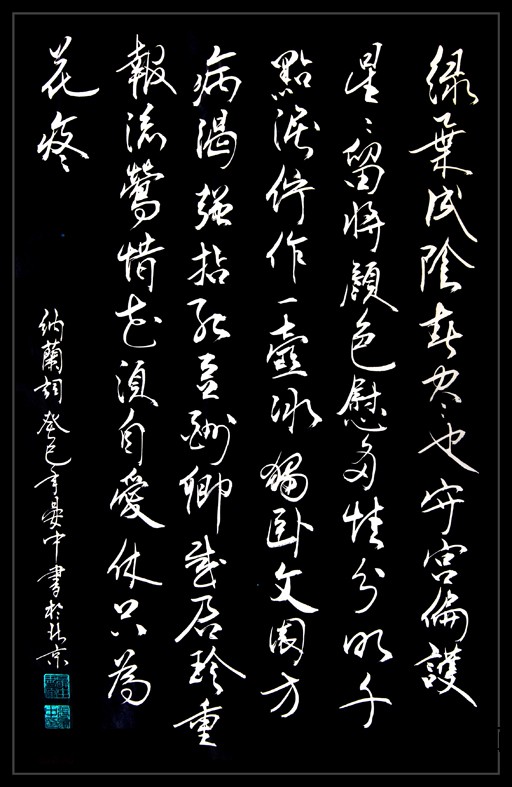 绿葉成陰春尽也守宫偏護
星〻留將顏色慰多情分明千
點淚佇作一壺冰獨卧文園方
病渴强拈紅豆酬卿感君珍重
報流鶯惜花須自愛休只為
花疼
納蘭詞癸巳年晏中書於北京